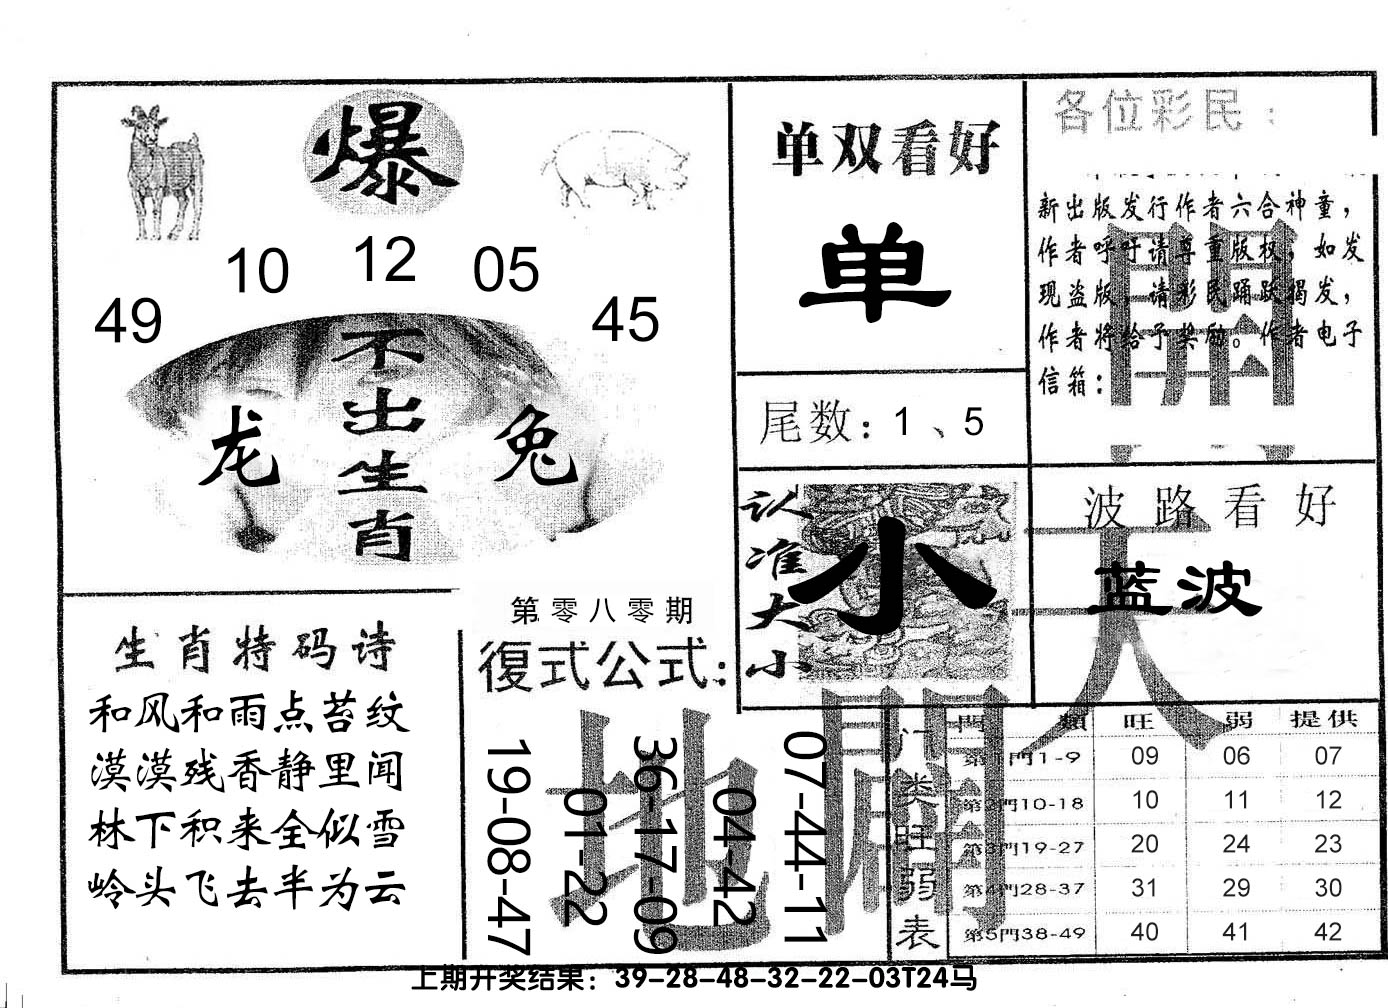 爆
10 12 05
49 45
不出生肖
龙 兔
单双看好
单
尾数：1、5
各位彩民：
新出版发行作者六合神童，
作者呼吁请尊重版权，如发
现盗版，请彩民踊跃揭发，
作者将给予奖励。作者电子
信箱：
認准大小
小
波路看好
蓝波
天
開
生肖特码诗
和风和雨点苔纹
漠漠残香静里闻
林下积来全似雪
岭头飞去半为云
第零八零期
復式公式：
19-08-47
01-22
36-17-09
04-42
07-44-11
地
開
门类旺弱表
門 類 旺 弱 提供
第1門1-9 09 06 07
第2門10-18 10 11 12
第3門19-27 20 24 23
第4門28-37 31 29 30
第5門38-49 40 41 42
上期开奖结果：39-28-48-32-22-03T24马